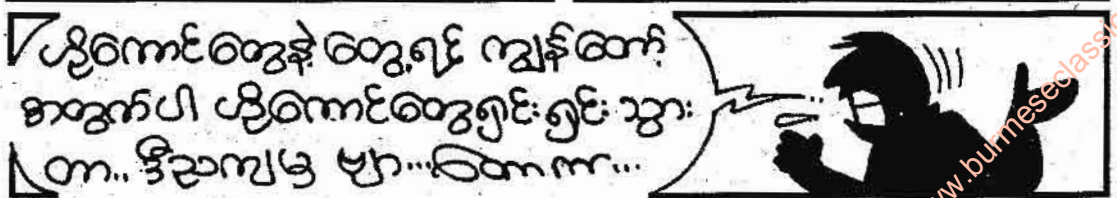 ဟိုကောင်တွေနဲ့ တွေ့ရင် ကျွန်တော့်
စာတွက်ပါ ဟိုကောင်တွေရှင်းရှင်းသွား
တာ.. ဒီညကျမှ ဗျာ...တောက်...
www.burmeseclassic